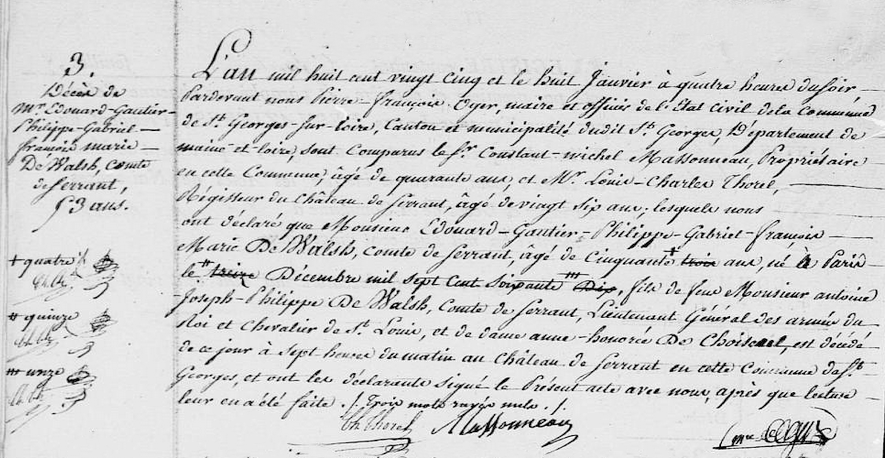 3.
Décès de
Mr. Edouard-Gautier-
Philippe-Gabriel-
françois marie-
De Walsh, comte
de Serrant,
53 ans.
+ quatre
++ quinze
+++ unze
L'an mil huit cent vingt cinq et le huit Janvier à quatre heures du soir
Pardevant nous Pierre-françois Oger, maire et officier de l'Etat civil de la Commune
de St. Georges-sur-loire, Canton et municipalité dudit St. Georges, Département de
maine-et-loire, sont comparus le Sr. Constant-michel Massonneau, Propriétaire
en cette Commune, âgé de quarante ans, et Mr. Louis-Charles Thorel,
Régisseur du Château de Serrant, âgé de vingt six ans; lesquels nous
ont déclaré que Monsieur Edouard-Gautier-Philippe-Gabriel-françois
Marie De Walsh, comte de Serrant, âgé de cinquante + trois ans, né à Paris
le ++ treize Décembre mil sept cent soixante +++ Dix, fils de feue Monsieur antoine
Joseph-Philippe De Walsh, Comte de Serrant, Lieutenant Général des armées du
Roi et Chevalier de St. Louis, et de dame anne-honorée De Choiseul, est décédé
de ce jour à Sept heures du matin au Château de Serrant en cette Commune de St.
Georges, et ont les déclarants signé le Présent acte avec nous, après que lecture
leur en a été faite ./. Trois mots rayés nuls ./.
Ch Thorel Massonneau